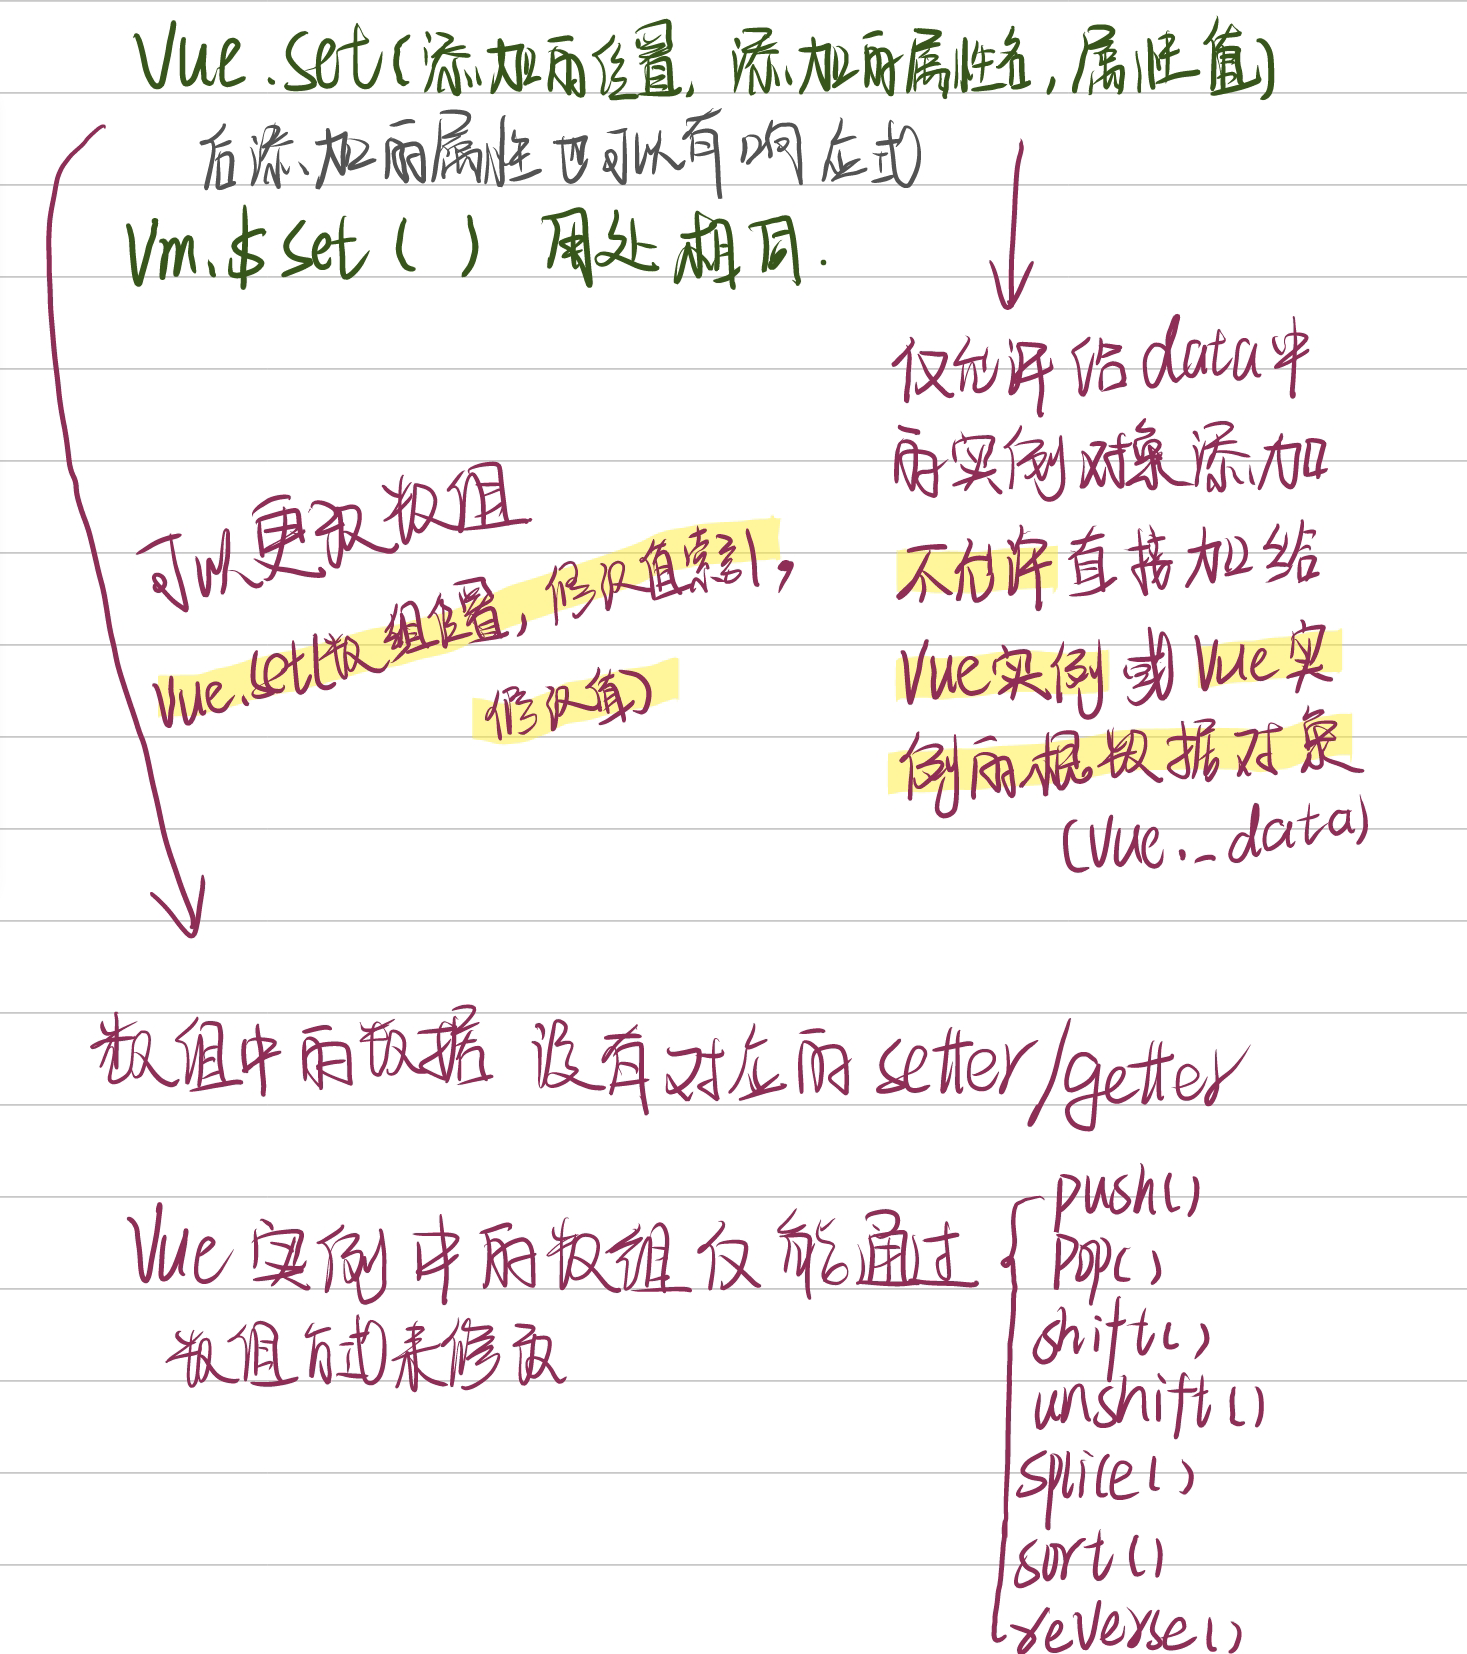 Vue.set(添加的位置, 添加的属性名, 属性值)
后添加的属性也可以有响应式
Vm.$set( ) 用处相同.
仅允许给data中
的实例对象添加
不允许直接加给
Vue实例或Vue实
例的根数据对象
(Vue._data)
可以更改数组
Vue.set(数组位置, 修改值索引,
修改值)
数组中的数据 没有对应的 setter/getter
Vue 实例中的数组仅能通过
数组方式来修改
push()
pop()
shift()
unshift()
splice()
sort()
reverse()